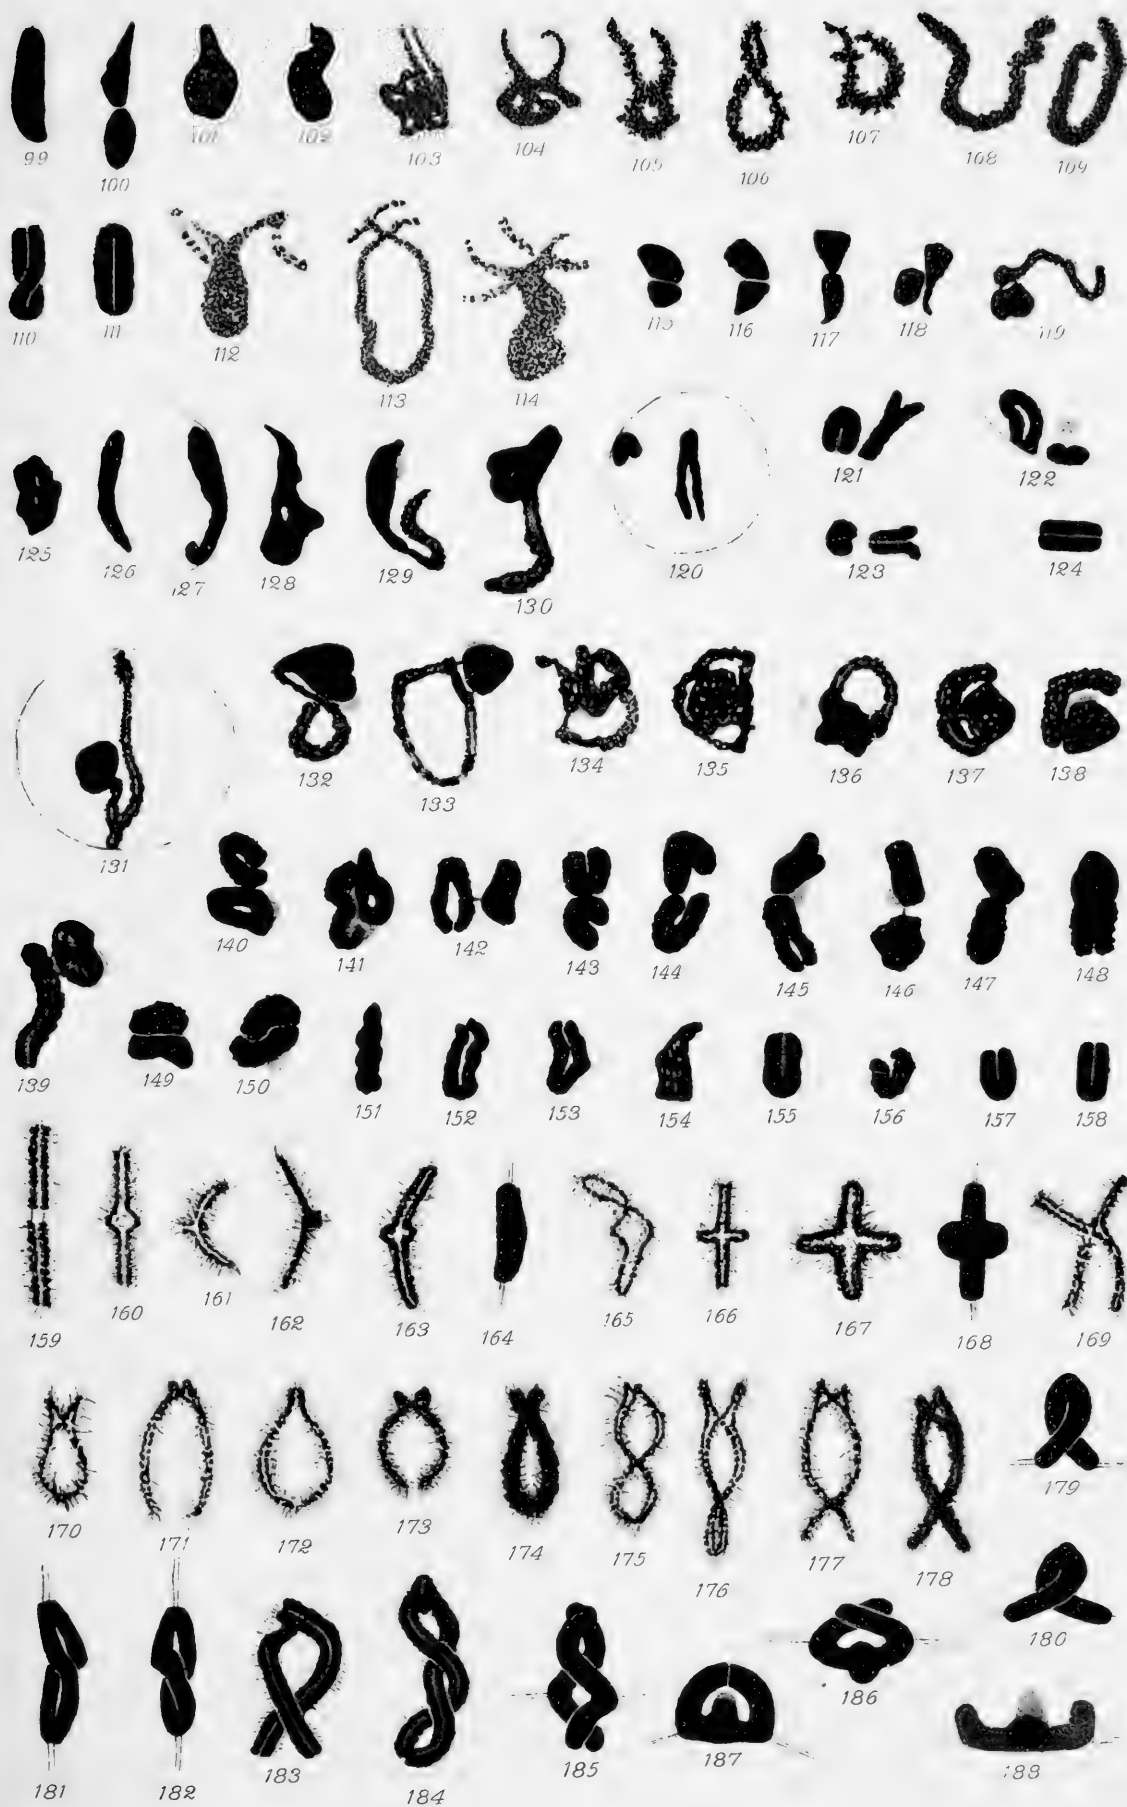 99 100 101 102 103 104 105 106 107 108 109
110 111 112 113 114 115 116 117 118 119
120 121 122 123 124
125 126 127 128 129 130
131 132 133 134 135 136 137 138
139 140 141 142 143 144 145 146 147 148
149 150 151 152 153 154 155 156 157 158
159 160 161 162 163 164 165 166 167 168 169
170 171 172 173 174 175 176 177 178 179
180
181 182 183 184 185 186 187 188